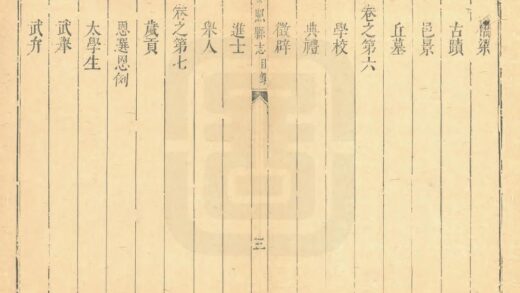 橋梁
古蹟
邑景
丘墓
卷之第六
學校
典禮
徵辟
照縣志目錄
三
進士
舉人
卷之第七
歲貢
恩選恩例
太學生
武舉
武弁